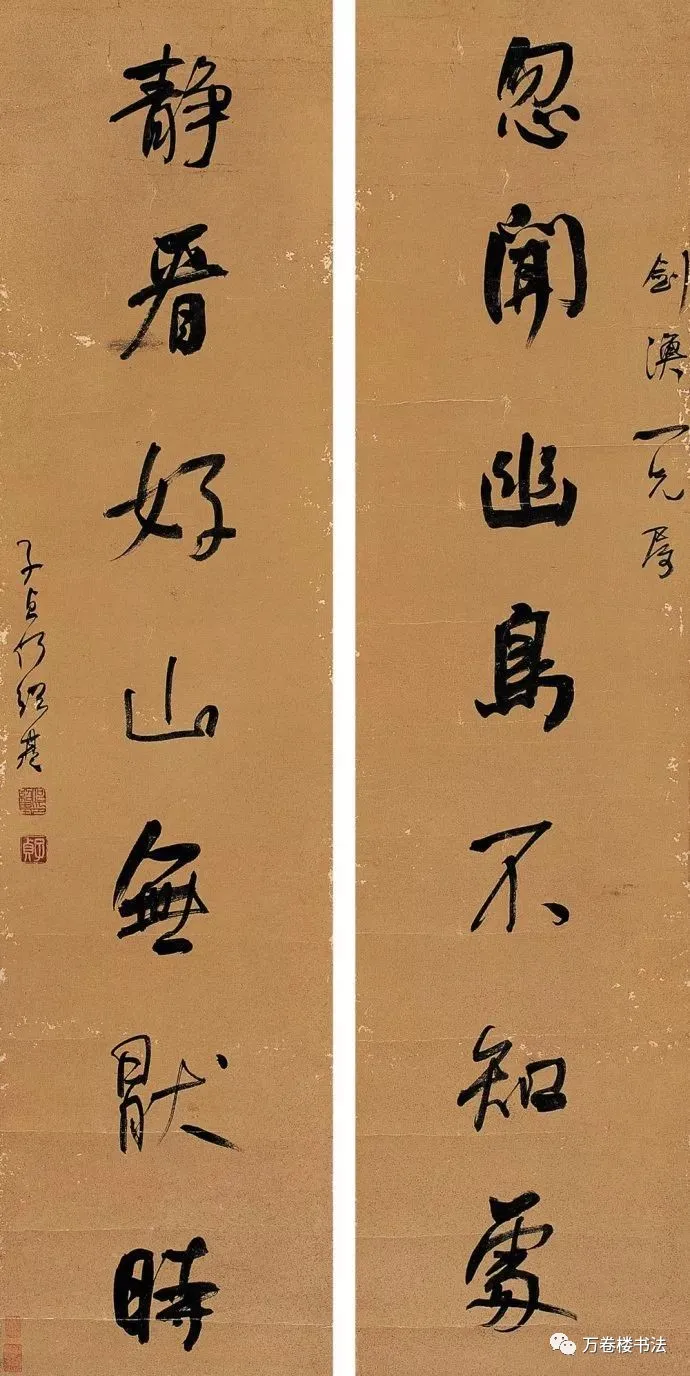 忽聞幽鳥不知處
劍潭一兄屬
靜看好山無猒時
子貞何紹基
子貞
万卷楼书法